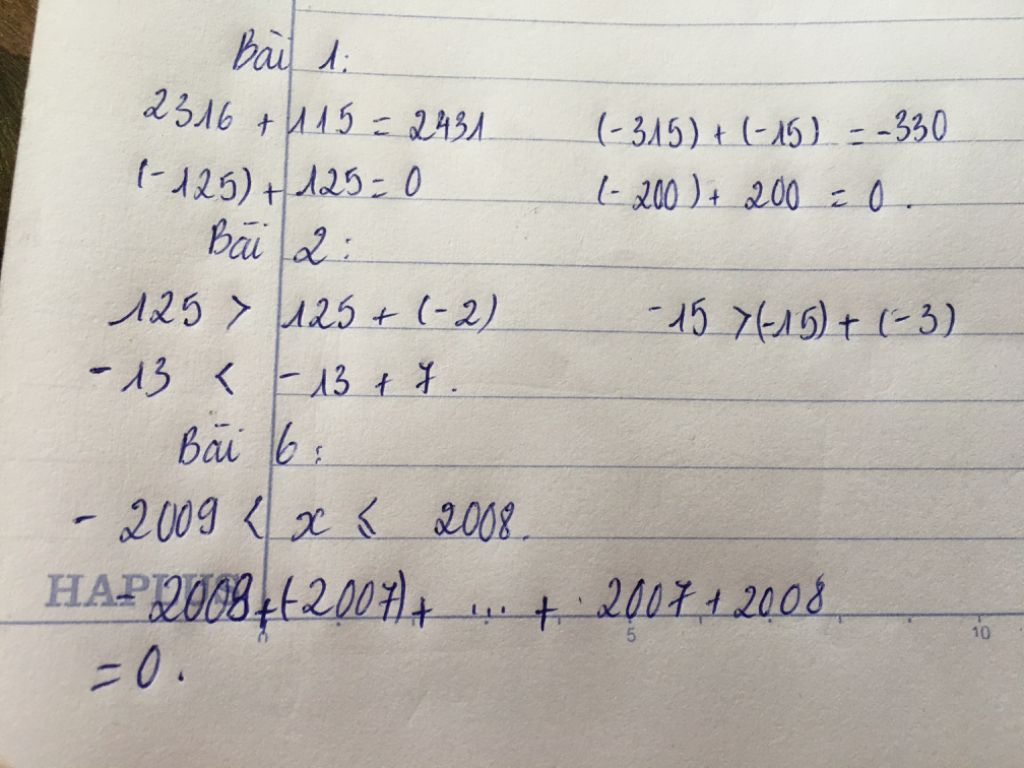 Bài 1:
2316 + 115 = 2431 (-315) + (-15) = -330
(-125) + 125 = 0 (- 200) + 200 = 0 .
Bài 2 :
125 > 125 + (-2) -15 > (-15) + (-3)
- 13 < - 13 + 7 .
Bài 6 :
- 2009 < x ⩽ 2008.
- 2008 + (-2007) + ... + 2007 + 2008
0 5 10
= 0 .